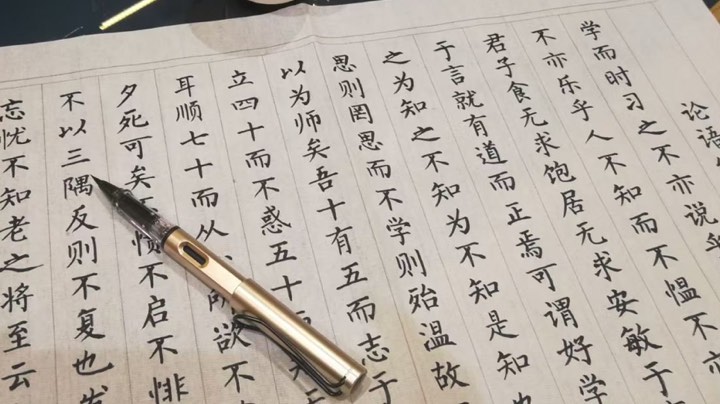 论语
学而时习之不亦说乎
不亦乐乎人不知而不愠不亦
君子食无求饱居无求安敏于
于言就有道而正焉可谓好学
之为知之不知为不知是知也
思则罔思而不学则殆温故
以为师矣吾十有五而志于
立四十而不惑五十而
耳顺七十而从所欲不
夕死可矣不愤不启不悱
不以三隅反则不复也发
忘忧不知老之将至云